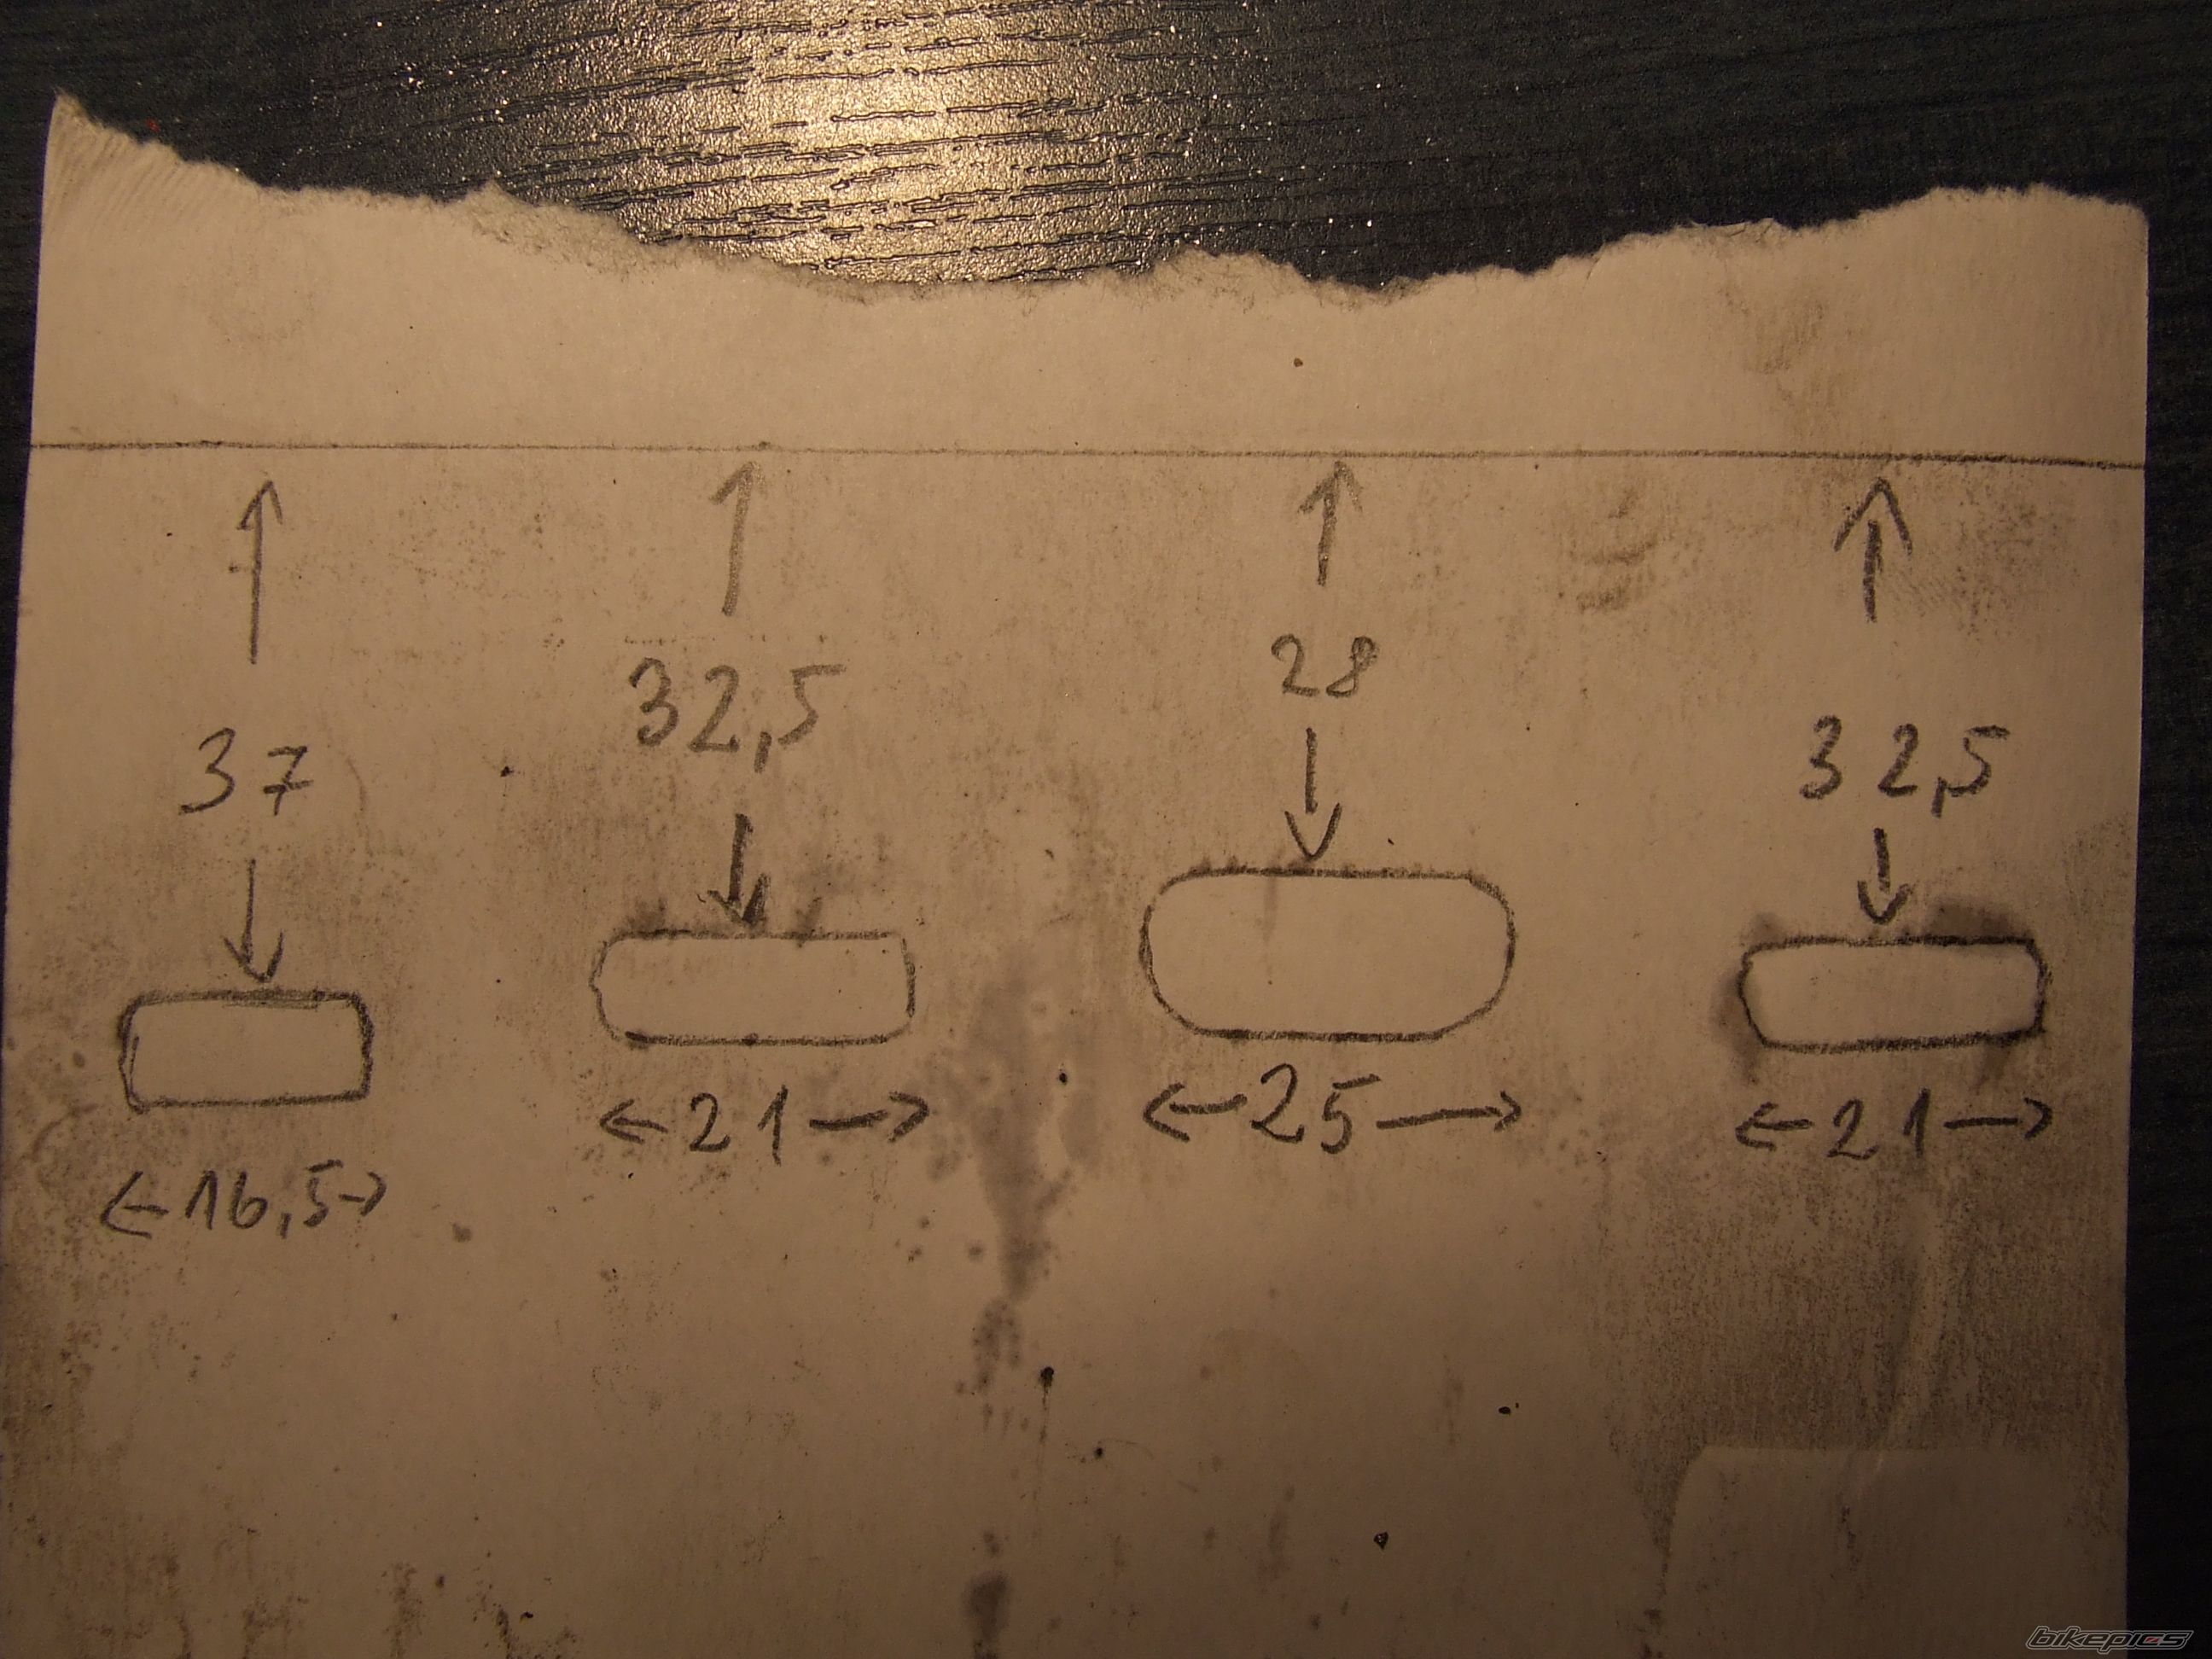 37
32,5
28
32,5
16,5
21
25
21
bikepics